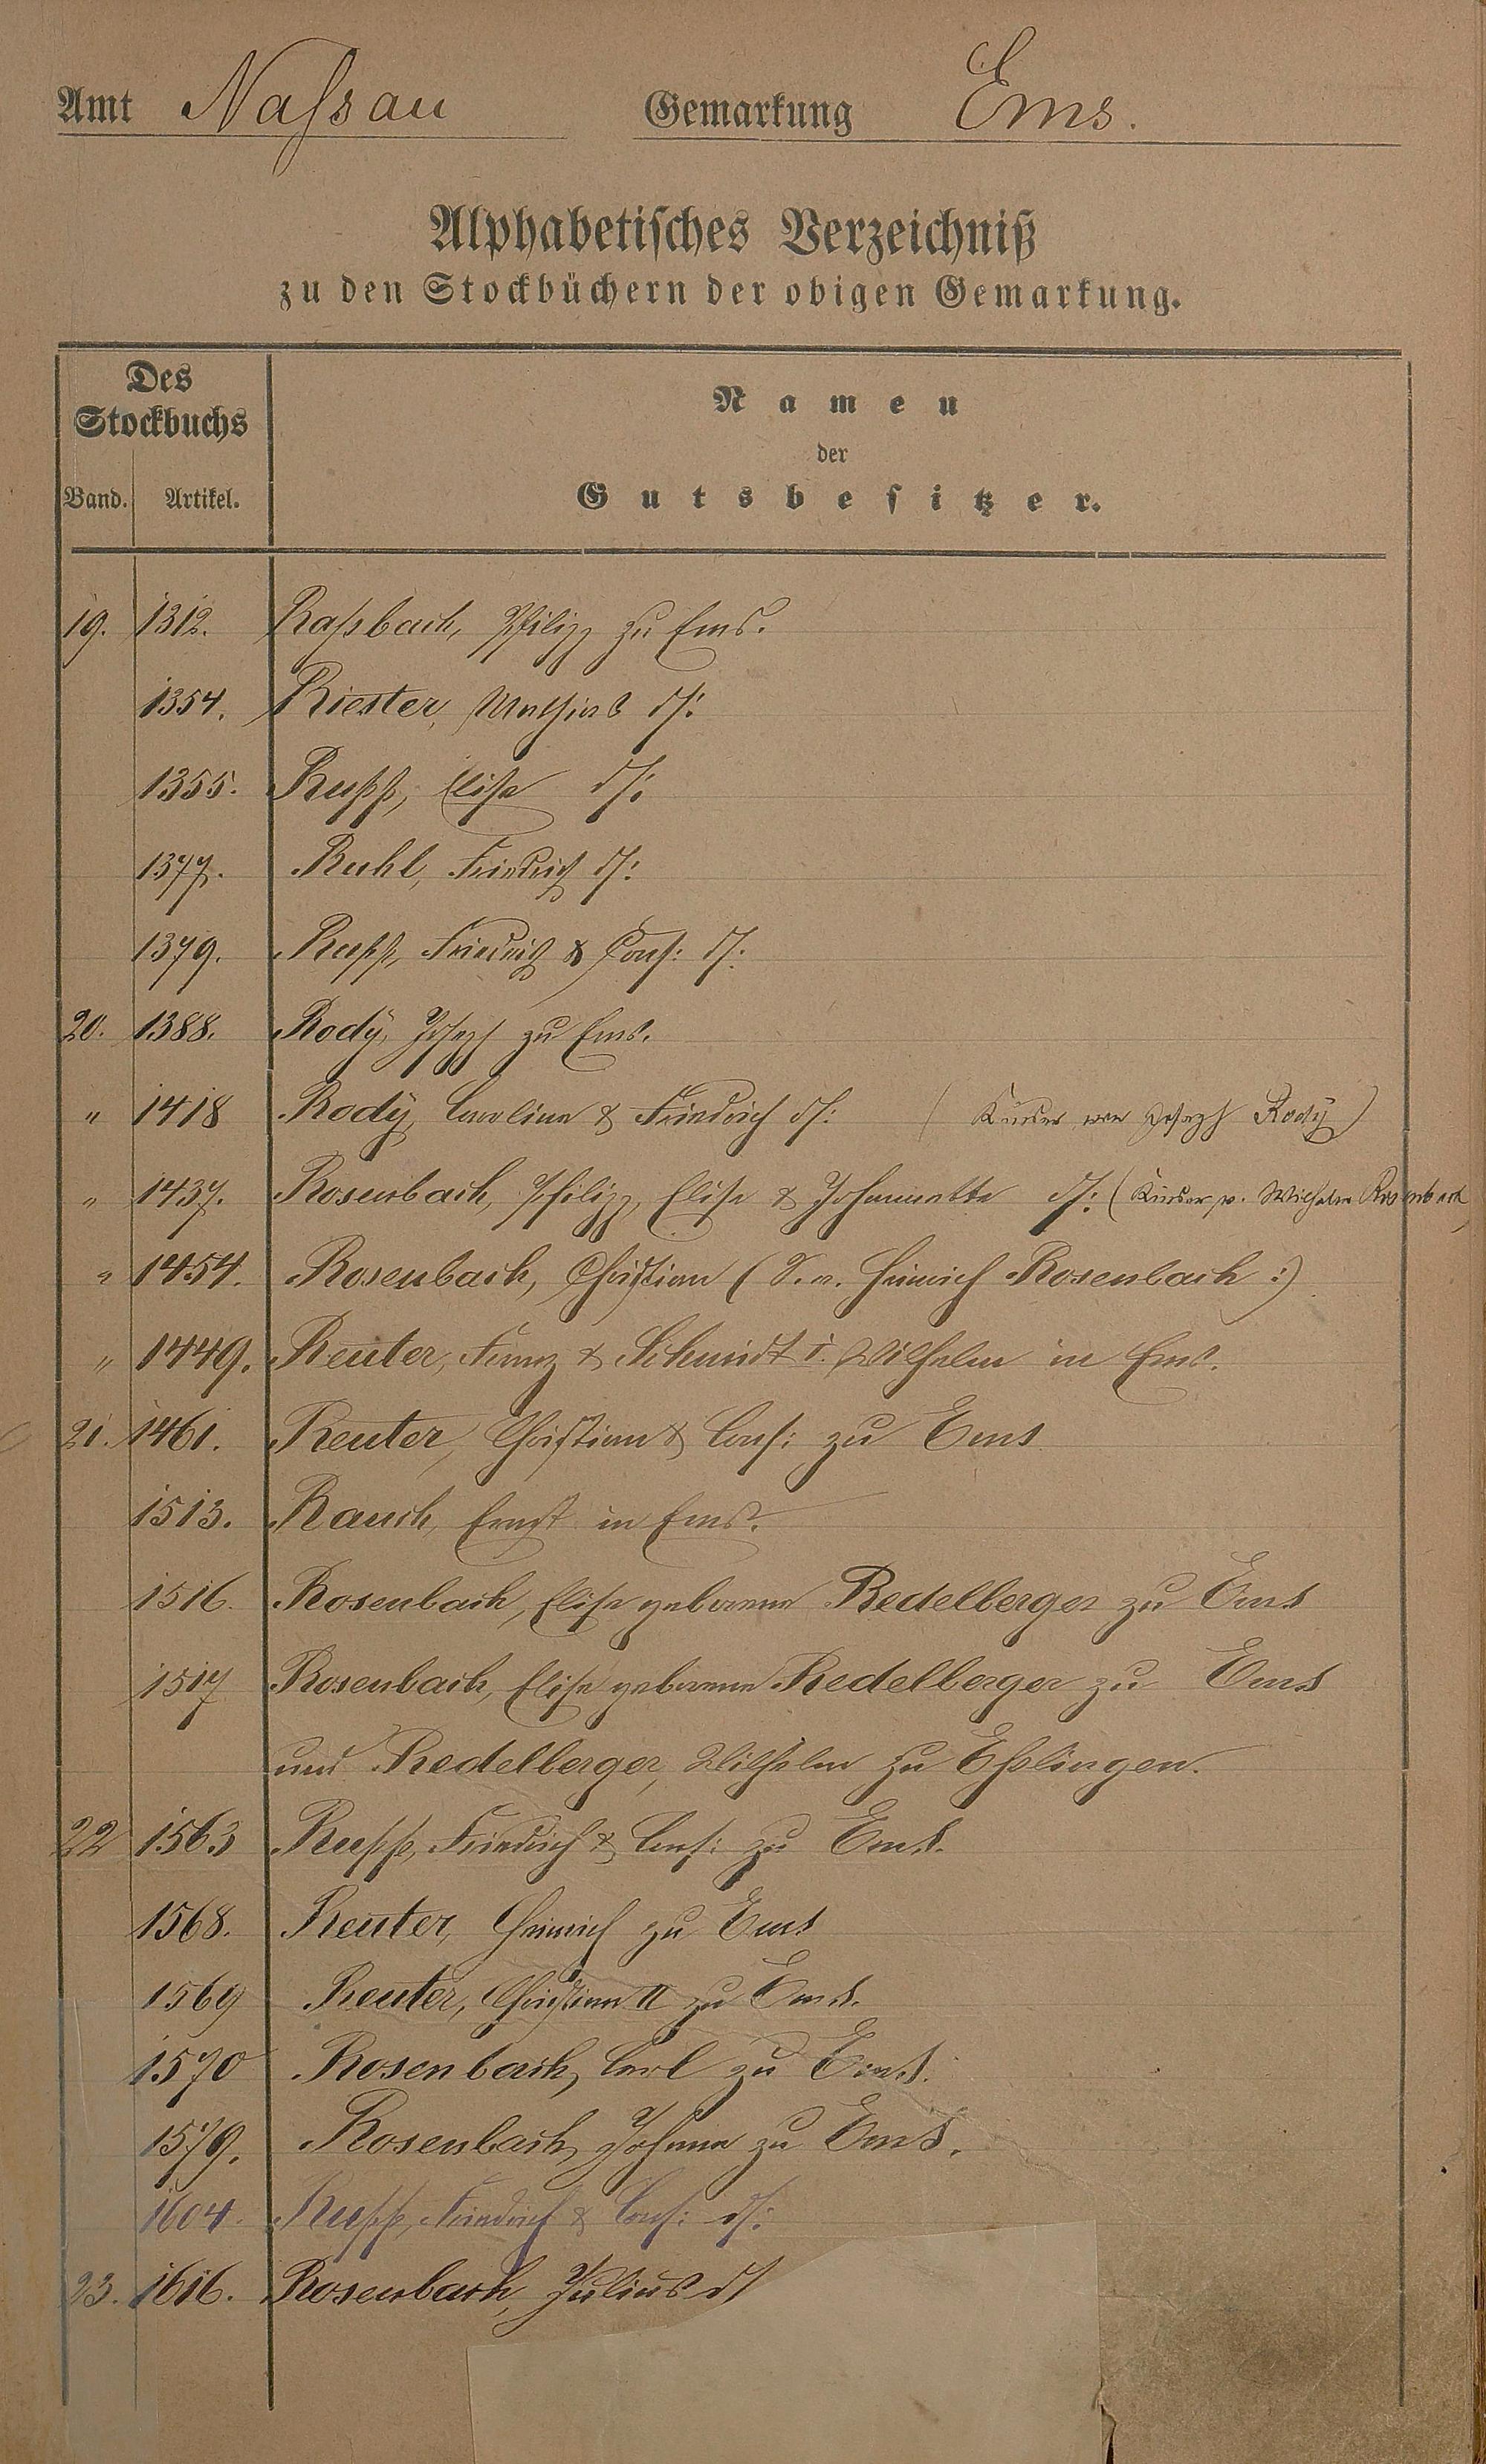 Amt Naßsau Gemarkung Ems.
Alphabetisches Verzeichniß
zu den Stockbüchern der obigen Gemarkung.
Des
Stockbuchs
Band. Artikel.
Namen
der
Gutsbesitzer.
19. 1312. Raßbach, Philipp zu Ems.
1354. Riester, Mathias d/:
1355. Rupp, Elise d/:
1377. Ruhl, Friedrich d/:
1379. Rupp, Friedrich & Cons: d/:
20. 1388. Rodÿ, Joseph zu Ems.
" 1418 Rodÿ, Caroline & Friedrich d/: (Kinder von Joseph Rodÿ)
" 1437. Rosenbach, Philipp, Elise & Johannette d/: (Kinder v. Wilhelm Rosenbach
" 1454. Rosenbach, Christian (S. v. Heinrich Rosenbach :)
" 1449. Reuter, Franz & Schmidt I. Wilhelm in Ems.
21. 1461. Reuter, Christian & Cons: zu Ems
1513. Rauch, Ernst in Ems.
1516. Rosenbach, Elise geborene Redelberger zu Ems
1517 Rosenbach, Elise geborene Redelberger zu Ems
und Redelberger, Wilhelm zu Eßlingen.
22 1563 Rupp, Friedrich & Cons: zu Ems.
1568. Reuter, Heinrich zu Ems
1569 Reuter, Christian II zu Ems.
1570 Rosenbach, Carl zu Ems.
1579. Rosenbach, Johann zu Ems.
1604. Rupp, Friedrich & Cons: d/:
23. 1616. Rosenbach, Julius d/